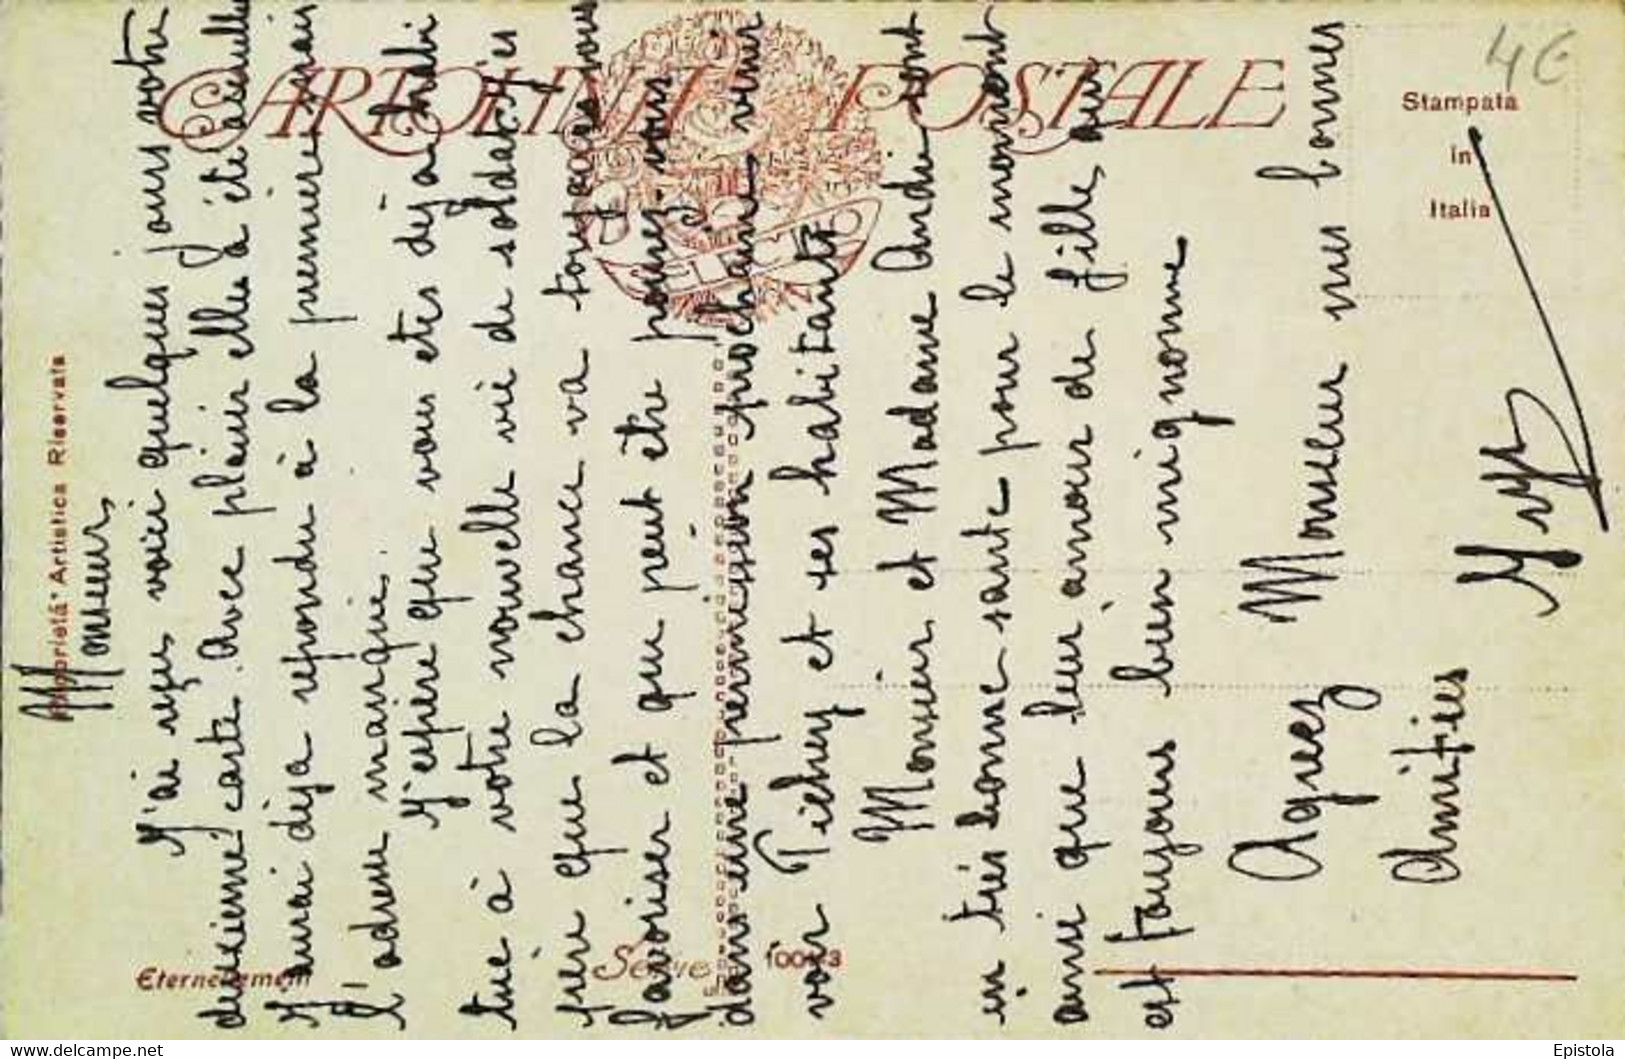 CARTOLINA POSTALE
Stampata
in
Italia
4€
Proprietá Artistica Riservata
Eternellement
Serie 100
Monsieur,
J'ai reçus voici quelques jours votre
deuxieme carte. Avec plaisir elle à été
J'aurai déja repondu à la premiere mais
l'adresse manquie.
J'espère que vous etes déja habi
tué à votre nouvelle vie de soldat. J'es
pere que la chance va toujours vous
favoriser et que peut être pourez-vous
dans une permission prochaine venir
voir et ses habitants
Monsieur et Madame André sont
en très bonne sante pour le moment
ainsi que leur amour de fille, qui
est toujours bien mignonne
Agreez Monsieur mes bonnes
Amitiés
delcampe.net
Epistola